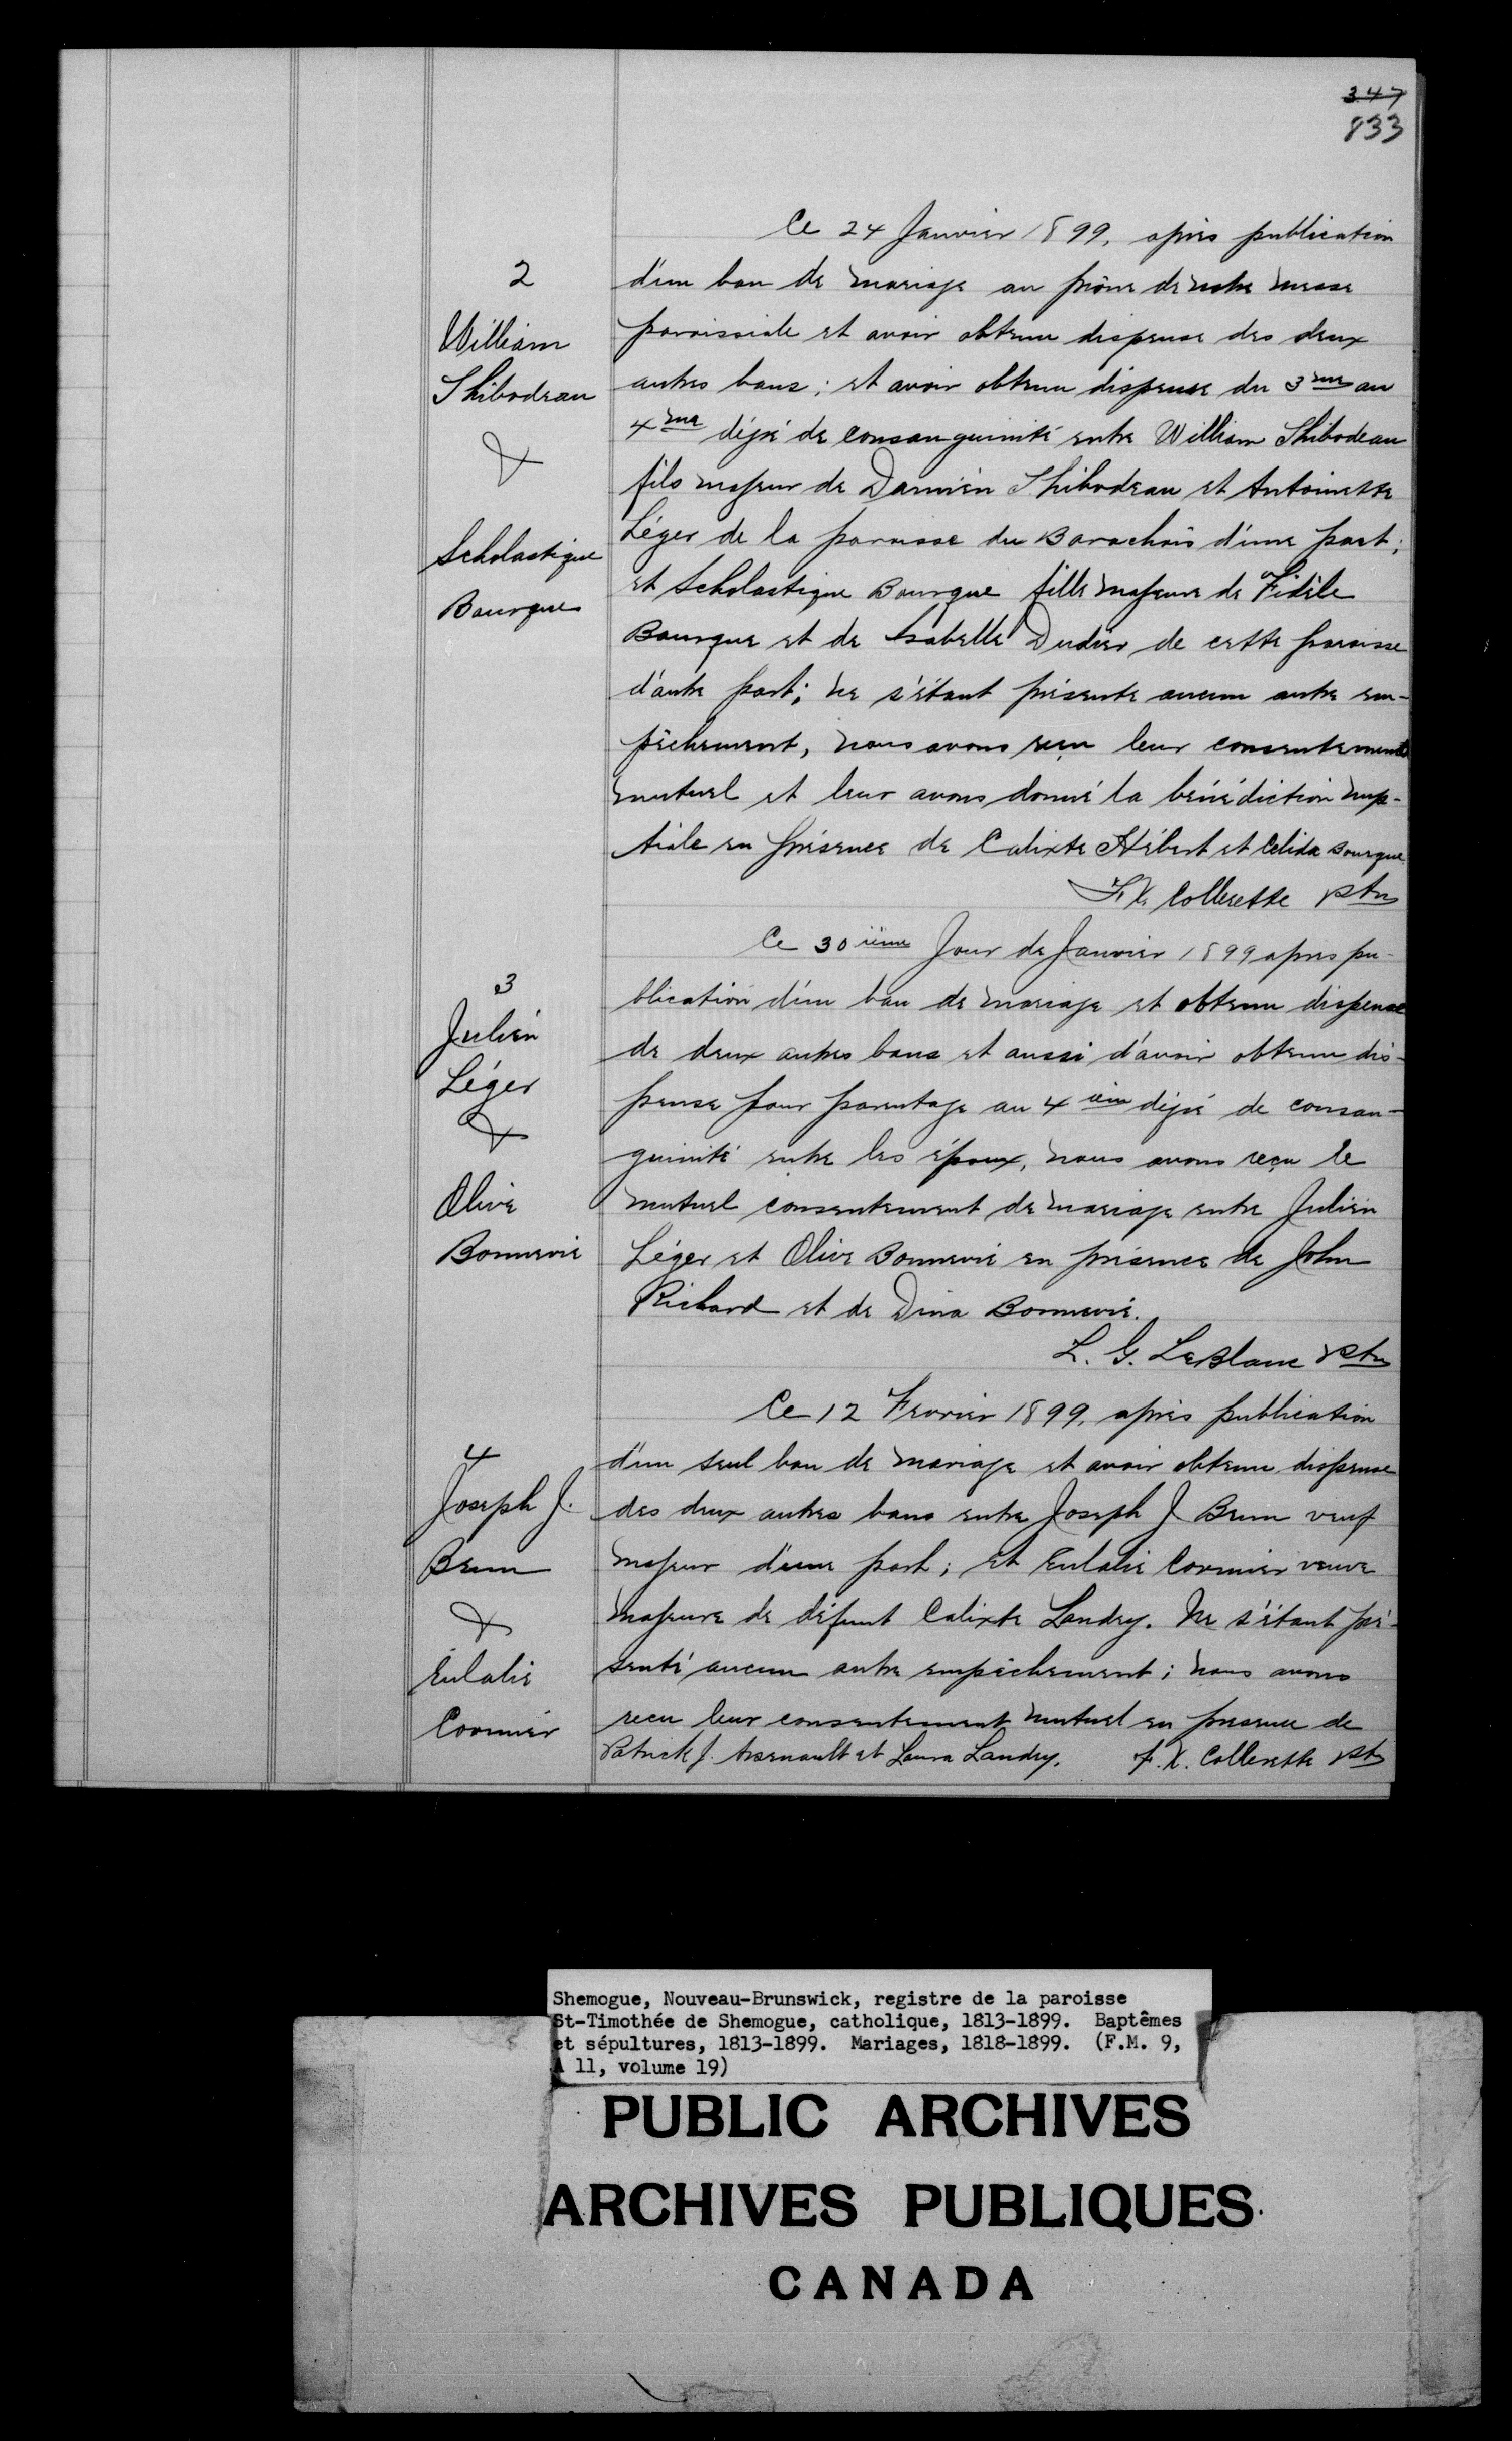 347
833
Ce 24 Janvier 1899, après publication
2
d'un ban de mariage au prône de notre messe
William
paroissiale et avoir obtenu dispense des deux
Thibodeau
autres bans; et avoir obtenu dispense du 3me au
&
4me dégré de consanguinité entre William Thibodeau
fils majeur de Damien Thibodeau et Antoinette
Léger de la paroisse du Barachois d'une part;
Scholastique
et Scholastique Bourque fille majeure de Fidèle
Bourque
Bourque et de Isabelle Dudier de cette paroisse
d'autre part; ne s'étant présenté aucun autre em-
pêchement, nous avons reçu leur consentement
mutuel et leur avons donné la bénédiction nup-
tiale en présence de Calixte Hébert et Celida Bourque
F. X. Collerette Ptre
Ce 30ième Jour de Janvier 1899 apres pu-
3
blication d'un ban de mariage et obtenu dispense
Julien
de deux autres bans et aussi d'avoir obtenu dis-
Léger
pense pour parentage au 4ième dégré de consan-
&
guinité entre les époux, nous avons reçu le
Olive
mutuel consentement de mariage entre Julien
Bonnevie
Léger et Olive Bonnevie en présence de John
Richard et de Dina Bonnevie.
L. G. LeBlanc Ptre
Ce 12 Fevrier 1899, après publication
4
d'un seul ban de mariage et avoir obtenu dispense
Joseph J.
des deux autres bans entre Joseph J Brun veuf
Brun
majeur d'une part; et Eulalie Cormier veuve
&
majeure de défunt Calixte Landry. Ne s'étant pré-
Eulalie
senté aucun autre empêchement; nous avons
Cormier
recu leur consentement mutuel en presence de
Patrick J. Arsenault et Laura Landry. F. X. Collerette Ptre
Shemogue, Nouveau-Brunswick, registre de la paroisse
St-Timothée de Shemogue, catholique, 1813-1899. Baptêmes
et sépultures, 1813-1899. Mariages, 1818-1899. (F.M. 9,
A 11, volume 19)
PUBLIC ARCHIVES
ARCHIVES PUBLIQUES
CANADA